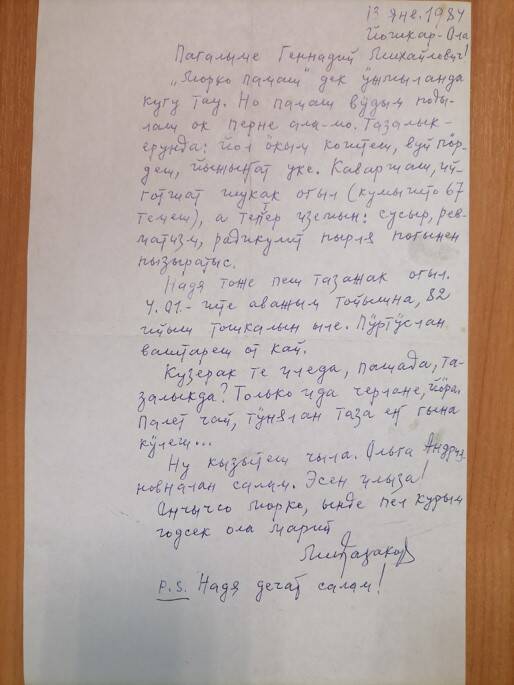 13 янв. 1984
Йошкар-Ола
Пагалыме Геннадий Михайлович!
„Морко памаш" дек ӱжмыланда
кугу тау. Но памаш вӱдым поды-
лаш ок перне ала-мо. Тазалык-
ерунда: йол ӧкым коштеш, вуй пӧр-
деш, йыжыҥат уке. Каваршат, ий-
готшат шукак огыл (кумыште 67
темеш), а теперь изешын: сусыр, рев-
матизм, радикулит пырля погынен
пызыратыс.
Надя тоже пеш тазажак огыл.
4.01.-ште аважым тойышна, 82
ийыш тошкалын ыле. Пӱртӱслан
ваштареш от кай.
Кузерак те иледа, пашада, та-
залыкда? Только ида черлане, йӧра.
Палет чай, тӱнялан таза еҥ гына
кӱлеш...
Ну кызытеш чыла. Ольга Андрия-
новналан салам. Эсен илыза!
Ончычсо морко, ынде пел курым
годсек ола марий
P.S. Надя дечат салам!